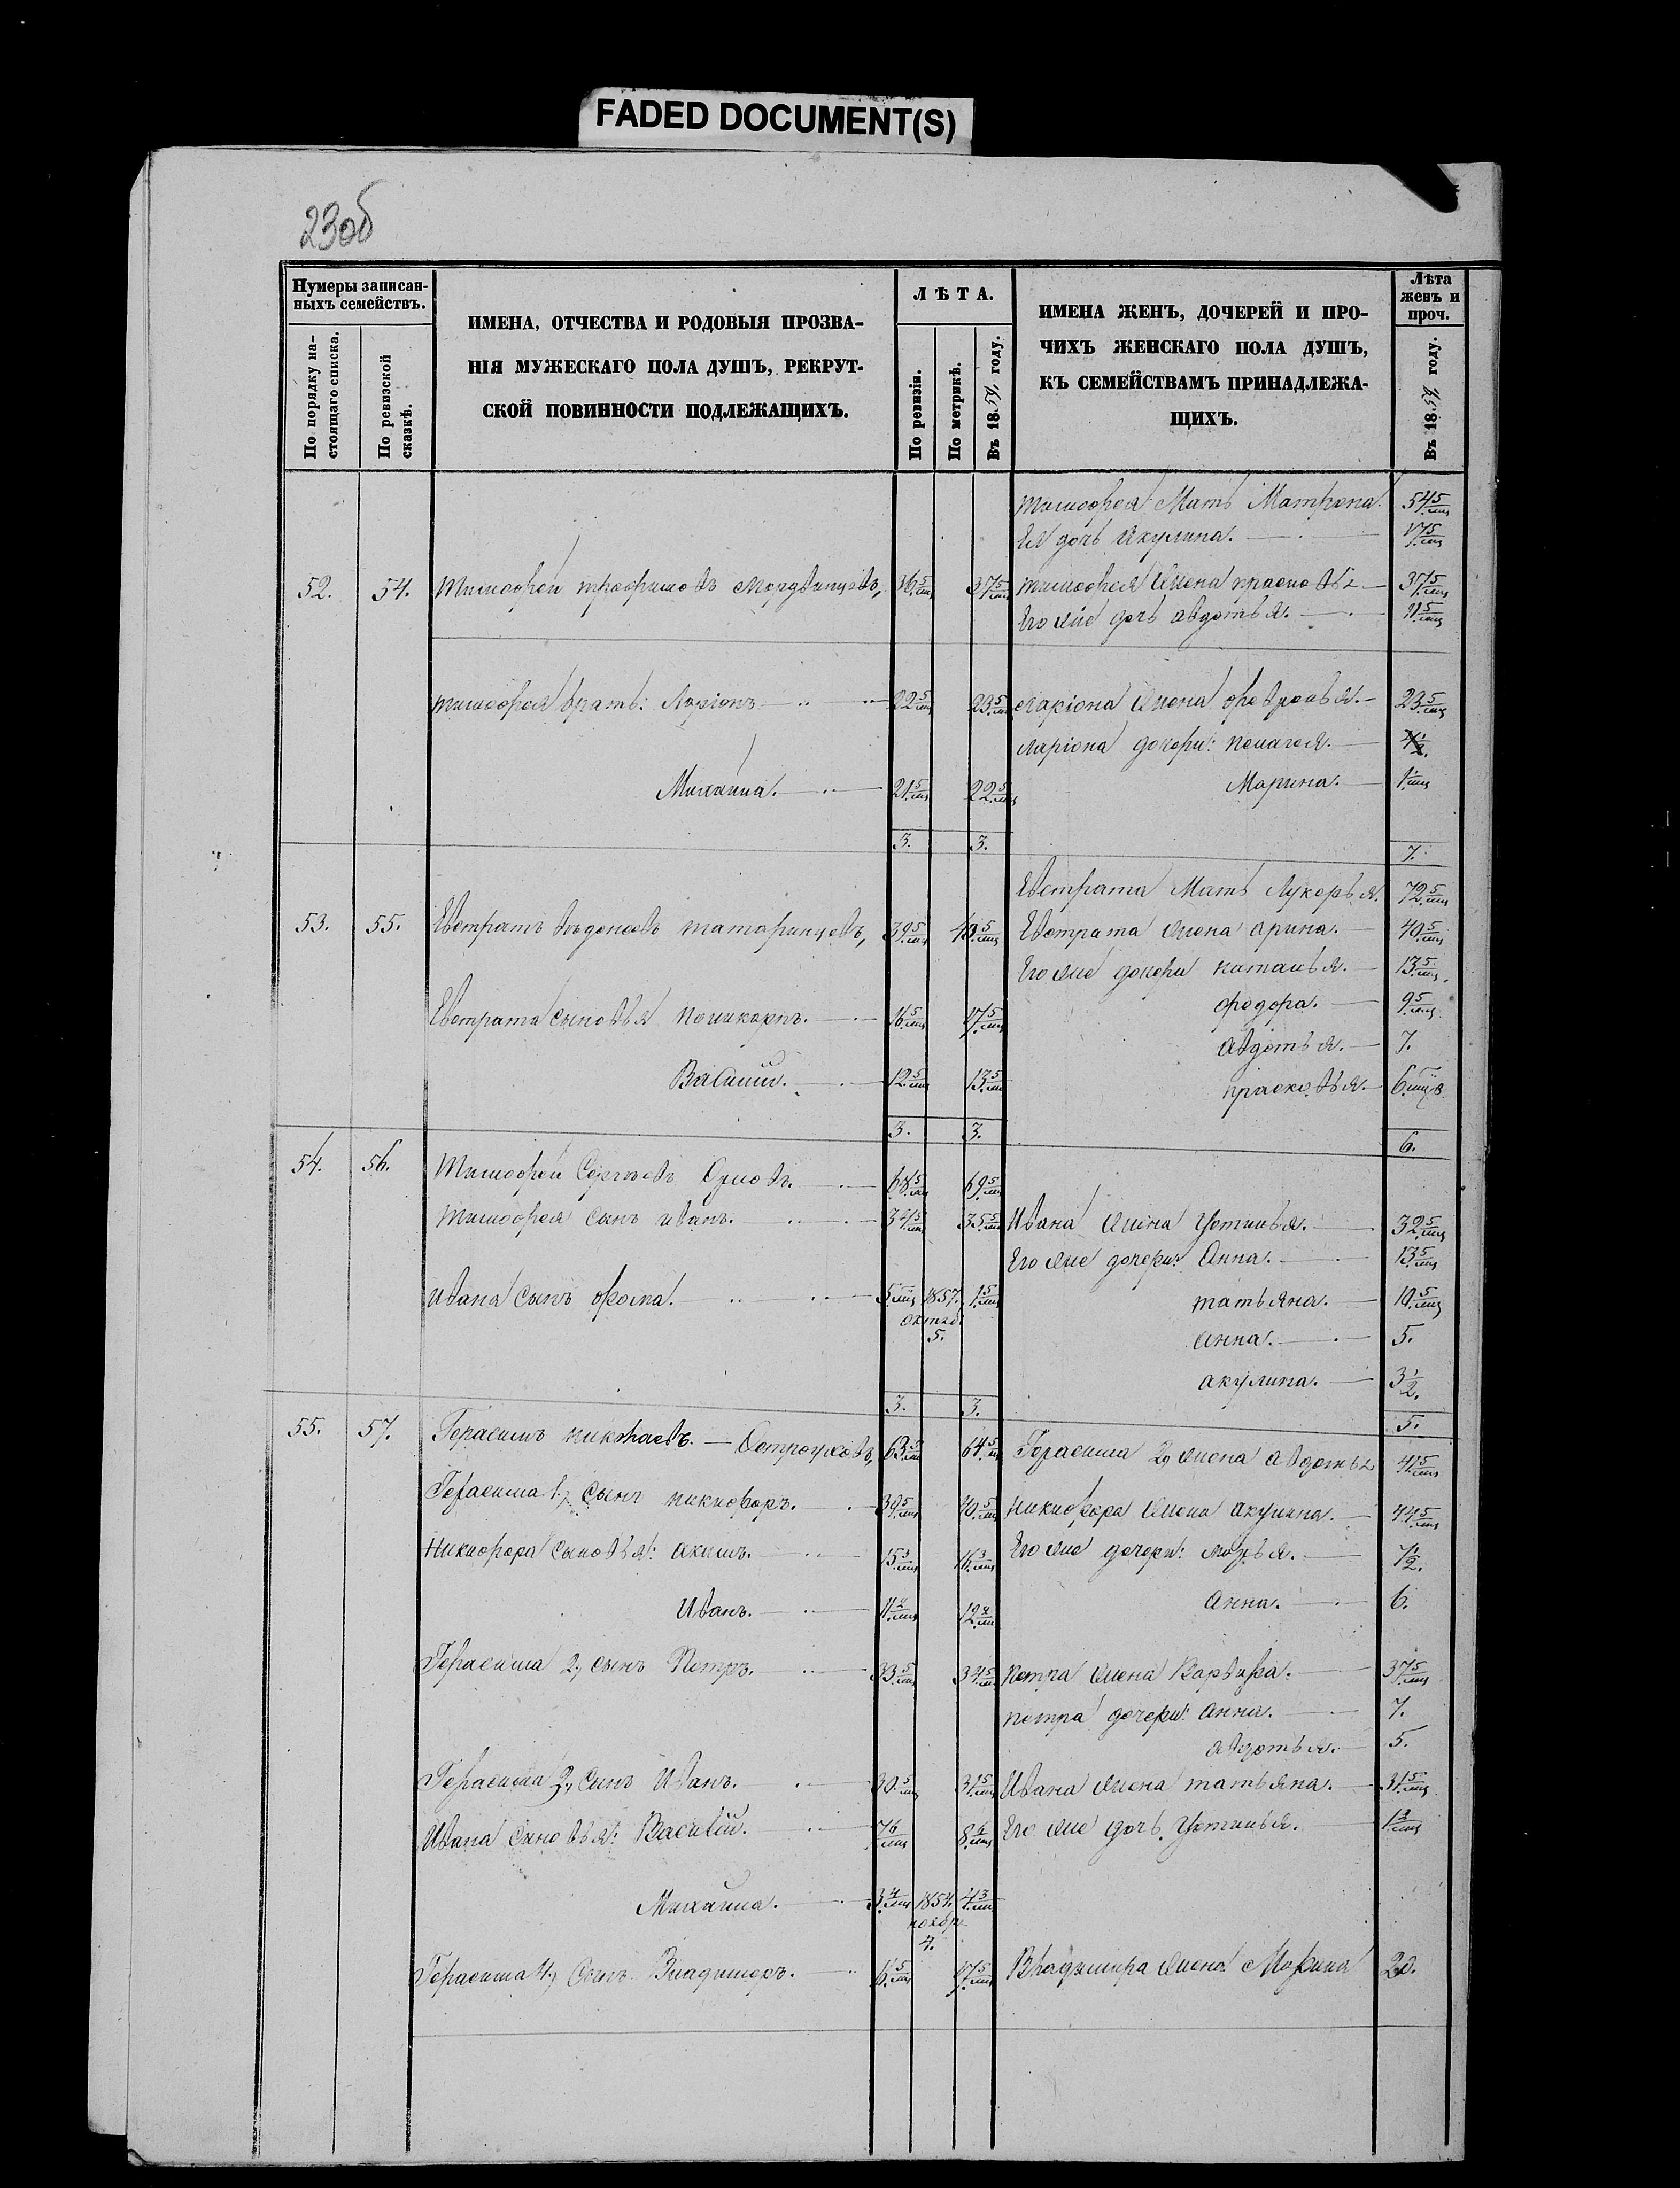 FADED DOCUMENT(S)
23об
Нумеры записан-
ныхъ семействъ.
По порядку на-
стоящаго списка.
По ревизской
сказкѣ.
ИМЕНА, ОТЧЕСТВА И РОДОВЫЯ ПРОЗВА-
НІЯ МУЖЕСКАГО ПОЛА ДУШЪ, РЕКРУТ-
СКОЙ ПОВИННОСТИ ПОДЛЕЖАЩИХЪ.
ЛѢТА.
По ревизіи.
По метрикѣ.
Въ 18 59 году.
ИМЕНА ЖЕНЪ, ДОЧЕРЕЙ И ПРО-
ЧИХЪ ЖЕНСКАГО ПОЛА ДУШЪ,
КЪ СЕМЕЙСТВАМЪ ПРИНАДЛЕЖА-
ЩИХЪ.
Лѣта
женъ и
проч.
Въ 18 59 году.
тимофея Мать Матрена. 54 5/мц
Ея дочь Акулина. 17 5/мц
52. 54. Тимофей трофимовъ Мордвинцевъ, 36 5/мц 37 5/мц тимофея жена прасковья 37 5/мц
Его же дочь авдотья. 11 5/мц
тимофея братъ: Ларіонъ 22 5/мц 23 5/мц Ларіона жена февронья. 23 5/мц
Ларіона дочери: пелагея. 4 1/2.
Михаила. 21 5/мц 22 5/мц Марина. 1 мц
3. 3. 7.
Евстрата Мать Лукерья. 72 5/мц
53. 55. Евстратъ татаринцевъ, 39 5/мц 40 5/мц Евстрата жена арина. 40 5/мц
Его же дочери наталья. 13 5/мц
федора. 9 5/мц
Евстрата сыновья поликарпъ. 16 5/мц 17 5/мц
авдотья. 7.
Василий. 12 5/мц 13 5/мц прасковья. 6
3. 3. 6.
54. 56. Тимофей Сергѣевъ 68 5/мц 69 5/мц
Тимофея сынъ иванъ. 34 5/мц 35 5/мц Ивана жена Устинья. 32 5/мц
Его же дочери: Анна. 13 5/мц
Ивана сынъ фома. 5 мц 1857. октяб. 5. 1 5/мц татьяна. 10 5/мц
анна. 5.
акулина. 3 1/2.
3. 3. 5.
55. 57. Герасимъ николаевъ. Остроуховъ, 63 5/мц 64 5/мц Герасима 2, жена авдотья 41 5/мц
Герасима 1, сынъ никифоръ. 39 5/мц 40 5/мц Никифора жена акулина. 44 5/мц
Никифора сыновья: акимъ. 15 3/мц 16 3/мц Его же дочери: марья. 7 1/2.
Иванъ. 11 2/мц 12 2/мц анна. 6.
Герасима 2, сынъ Петръ. 33 5/мц 34 5/мц петра жена Варвара. 37 5/мц
петра дочери: анна. 7.
авдотья. 5.
Герасима 3, сынъ Иванъ. 30 5/мц 31 5/мц Ивана жена татьяна. 31 5/мц
Ивана сыновья: Василій. 7 6/мц 8 6/мц Его же дочь Устинья. 1 2/мц
Михаила. 3 4/мц 1854. ноябр. 4. 4 3/мц
Герасима 4, сынъ Владимеръ. 16 5/мц 17 5/мц Владимира жена Марина 20.